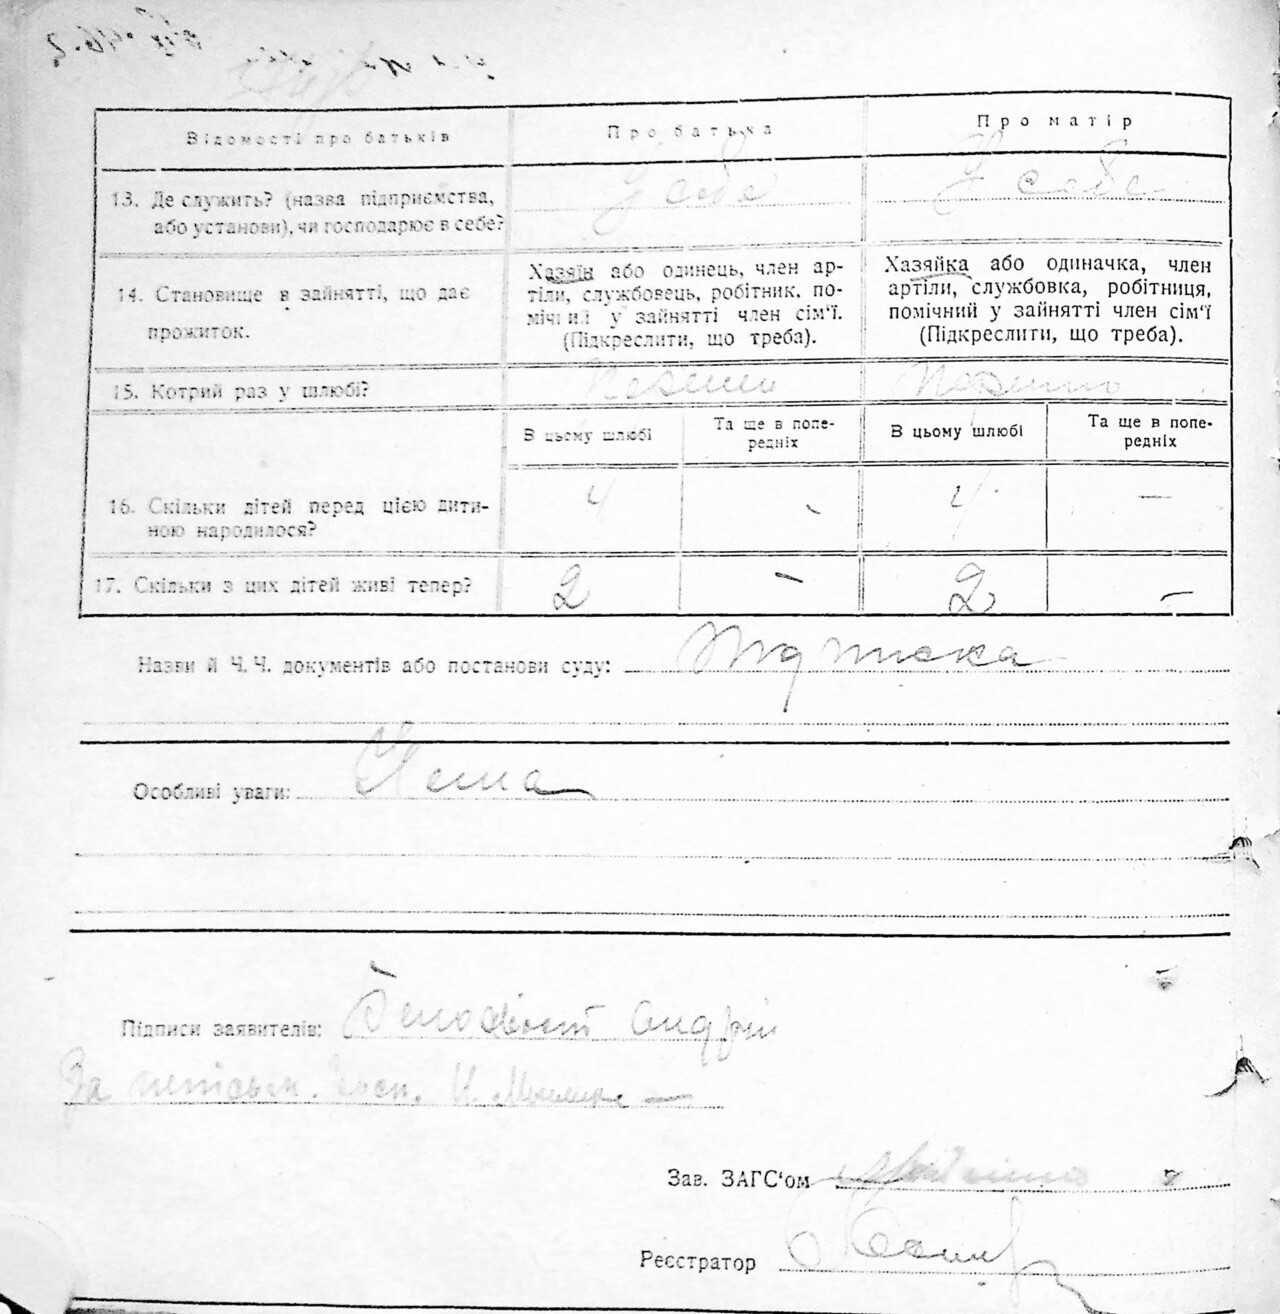 Відомості про батьків
Про батька
Про матір
13. Де служить? (назва підприємства,
або установи), чи господарює в себе?
У себе
У себе
14. Становище в зайнятті, що дає
прожиток.
Хазяїн або одинець, член ар-
тіли, службовець, робітник, по-
мічний у зайнятті член сім'ї.
(Підкреслити, що треба).
Хазяйка або одиначка, член
артіли, службовка, робітниця,
помічний у зайнятті член сім'ї
(Підкреслити, що треба).
15. Котрий раз у шлюбі?
В цьому шлюбі
Та ще в попе-
редніх
В цьому шлюбі
Та ще в попе-
редніх
16. Скільки дітей перед цією дити-
ною народилося?
4
-
4
—
17. Скільки з цих дітей живі тепер?
2
-
2
-
Назви й Ч. Ч. документів або постанови суду: Підписка
Особливі уваги: Нема
Підписи заявителів: Андрій
За
Зав. ЗАГС'ом
Реєстратор